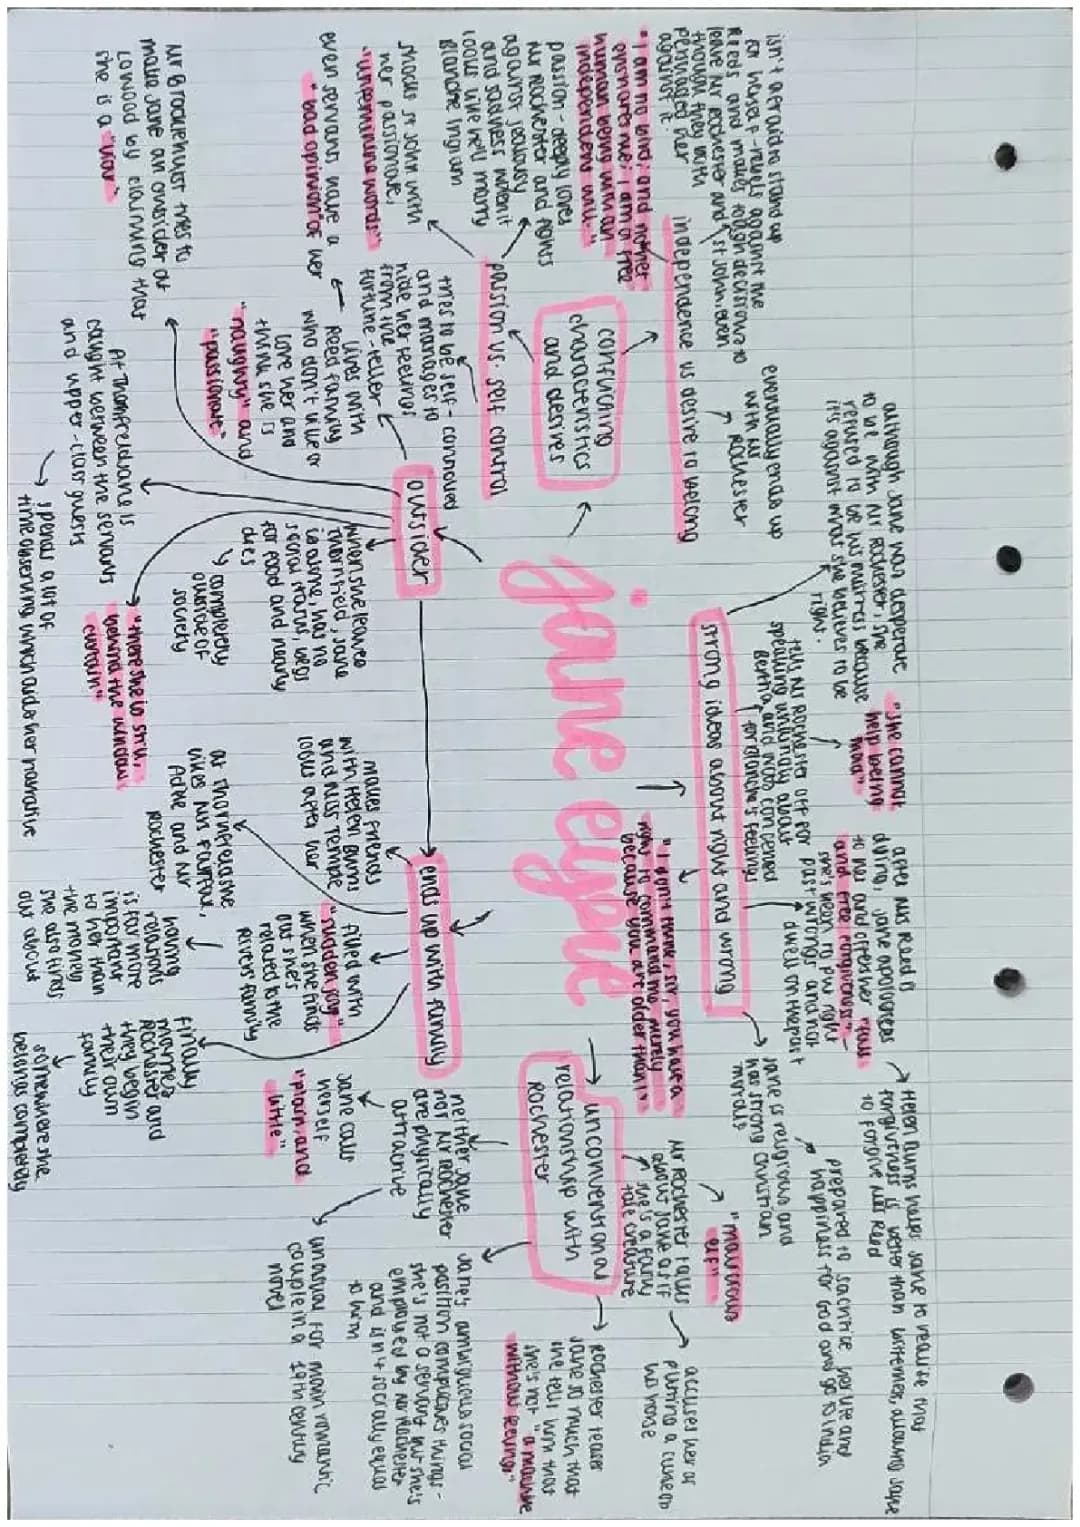 jane eyre
"I don't think, sir, you have a
right to command me, merely
because you are older than I"
strong ideas about right and wrong
although Jane was desperate
to be with Mr Rochester, she
refused to be his mistress because
its against what she believes to be
right.
tells Mr Rochester off for
speaking unkindly about
Bertha, and is concerned
for Blanche's feelings
"she cannot
help being
mad"
after Mrs Reed is
dying, Jane apologises
to her and offers her "full
and free forgiveness" -
she's keen to put right
past wrongs and not
dwell on the past
Helen Burns helps Jane to realise that
forgiveness is better than bitterness, allowing Jane
to forgive Mrs Reed
Jane is religious and
has strong christian
morals
prepared to sacrifice her life and
happiness for God and go to India
unconventional
relationship with
Rochester
Mr Rochester talks
about Jane as if
she's a fairy
tale creature
"malicious
elf"
accuses her of
putting a curse on
his horse
Rochester teases
Jane so much that
she tells him that
she's not "a machine
without feelings"
Jane's ambiguous social
position complicates things -
she's not a servant but she's
employed by Mr Rochester
and isn't socially equal
to him
neither Jane
nor Mr Rochester
are physically
attractive
Jane calls
herself
"plain, and
little"
unusual for main romantic
couple in a 19th century
novel
ends up with family
makes friends
with Helen Burns
and Miss Temple
looks after her
at Thornfield she
likes Mrs Fairfax,
Adele and Mr
Rochester
filled with
"sudden joy"
when she finds
out she's
related to the
Rivers family
having
relations
is far more
important
to her than
the money
she also finds
out about
finally
marries
Rochester and
they begin
their own
family
somewhere she
belongs completely
outsider
lives with
Reed family
who don't like or
love her and
think she is
"naughty" and
"passionate"
even servants have a
"bad opinion of her"
Mr Brocklehurst tries to
make Jane an outsider at
Lowood by claiming that
she is a "liar"
At Thornfield Jane is
caught between the servants
and upper-class guests
spends a lot of
time observing which aids her narrative
"there she is still,
behind the window
curtain"
when she leaves
Thornfield, Jane
is alone, has no
social status, begs
for food and nearly
dies
completely
outside of
society
conflicting
characteristics
and desires
independence vs desire to belong
isn't afraid to stand up
for herself - rebels against the
Reeds and makes tough decisions to
leave Mr Rochester and St John, even
though they both
persuaded her
against it.
"I am no bird; and no net
ensnares me; I am a free
human being with an
independent will."
eventually ends up
with Mr
Rochester
passion vs. self control
passion - deeply loves
Mr Rochester and fights
against jealousy
and sadness when it
looks like he'll marry
Blanche Ingram
shocks St John with
her passionate,
"unfeminine words"
tries to be self-controlled
and manages to
hide her feelings
from the
fortune-teller